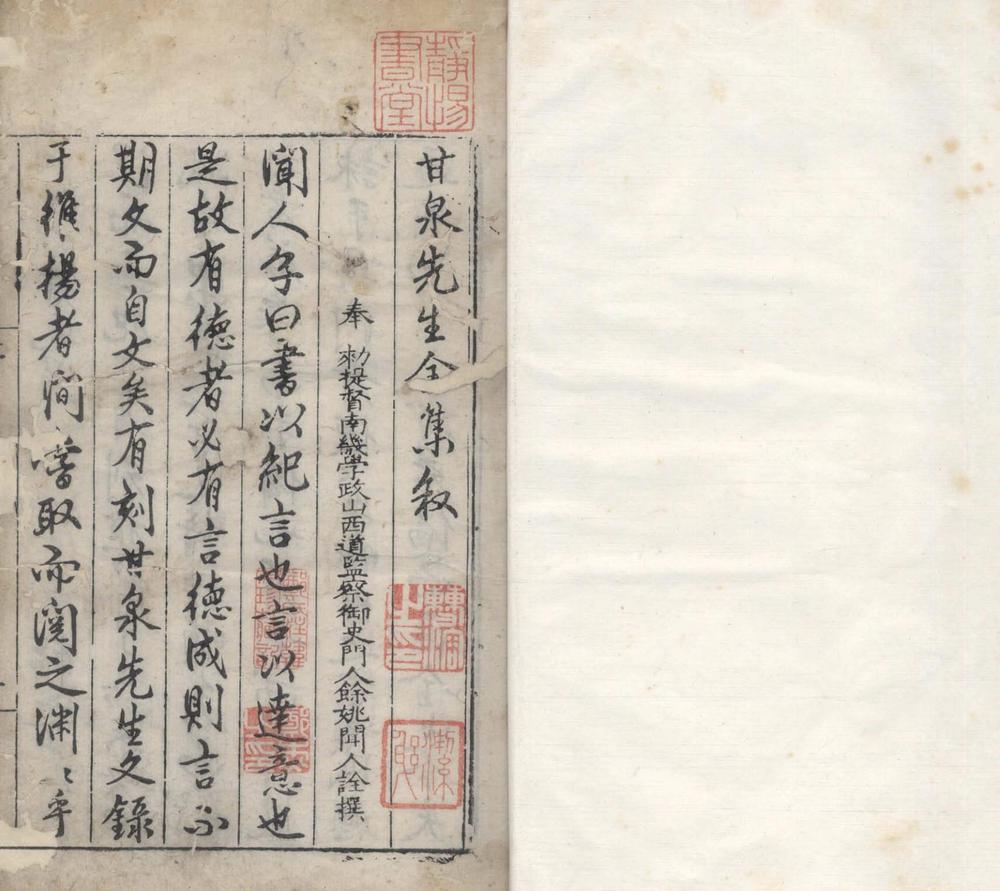 靜惕書堂
甘泉先生全集叙
奉 勑提督南畿學政山西道監察御史門人餘姚聞人詮撰
聞人子曰書以紀言也言以達意也
是故有德者必有言德成則言不
期文而自文矣有刻甘泉先生文錄
于維揚者間嘗取而閱之渊〻乎